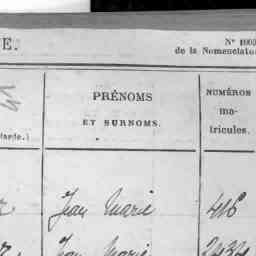 E.
N° 1003
de la Nomenclatu
PRÉNOMS
ET SURNOMS.
NUMÉROS
ma-
tricules.
Jean Marie 416
Jean Marie 2434